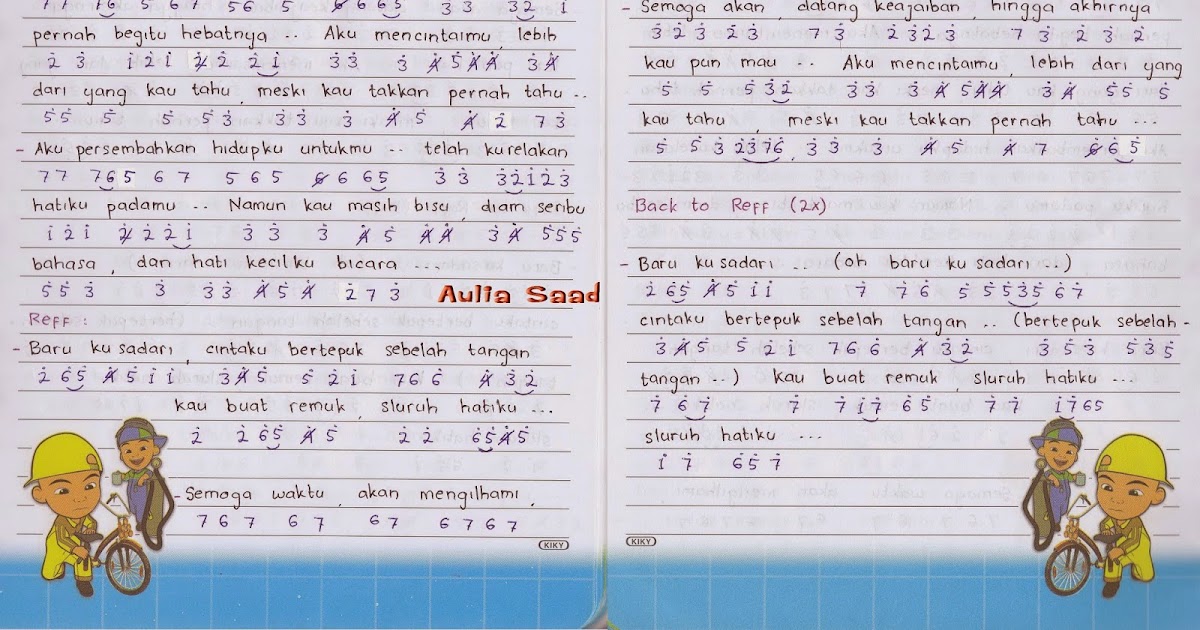 77 765 67 565 6665 33 321
pernah begitu hebatnya .. Aku mencintaimu, lebih
23 121 22 21 33 3 4544 34
dari yang kau tahu, meski kau takkan pernah tahu ..
55 5 5 53 33 3 45 42 73
- Aku persembahkan hidupku untukmu .. telah kurelakan
77 765 67 565 6665 33 32123
hatiku padamu .. Namun kau masih bisu, diam seribu
121 2221 33 3 45 44 34 555
bahasa, dan hati kecilku bicara ...
553 3 33 454 273
Aulia Saad
Reff :
- Baru ku sadari, cintaku bertepuk sebelah tangan
265 4511 345 521 766 432
kau buat remuk, sluruh hatiku ...
2 265 45 22 6545
- Semoga waktu, akan mengilhami,
767 67 67 6767
KIKY
- Semoga akan, datang keajaiban, hingga akhirnya
323 23 73 2323 73 232
kau pun mau .. Aku mencintaimu, lebih dari yang
5 5 532 33 3 4544 34 55 5
kau tahu, meski kau takkan pernah tahu ...
5 53 2376 33 3 45 47 665
Back to Reff (2x)
- Baru ku sadari .. (oh baru ku sadari ..)
265 4511 7 76 5 5535 67
cintaku bertepuk sebelah tangan .. (bertepuk sebelah-
345 521 766 432 353 535
tangan ..) kau buat remuk sluruh hatiku ...
7 67 7 717 65 77 1765
sluruh hatiku ...
17 657
KIKY